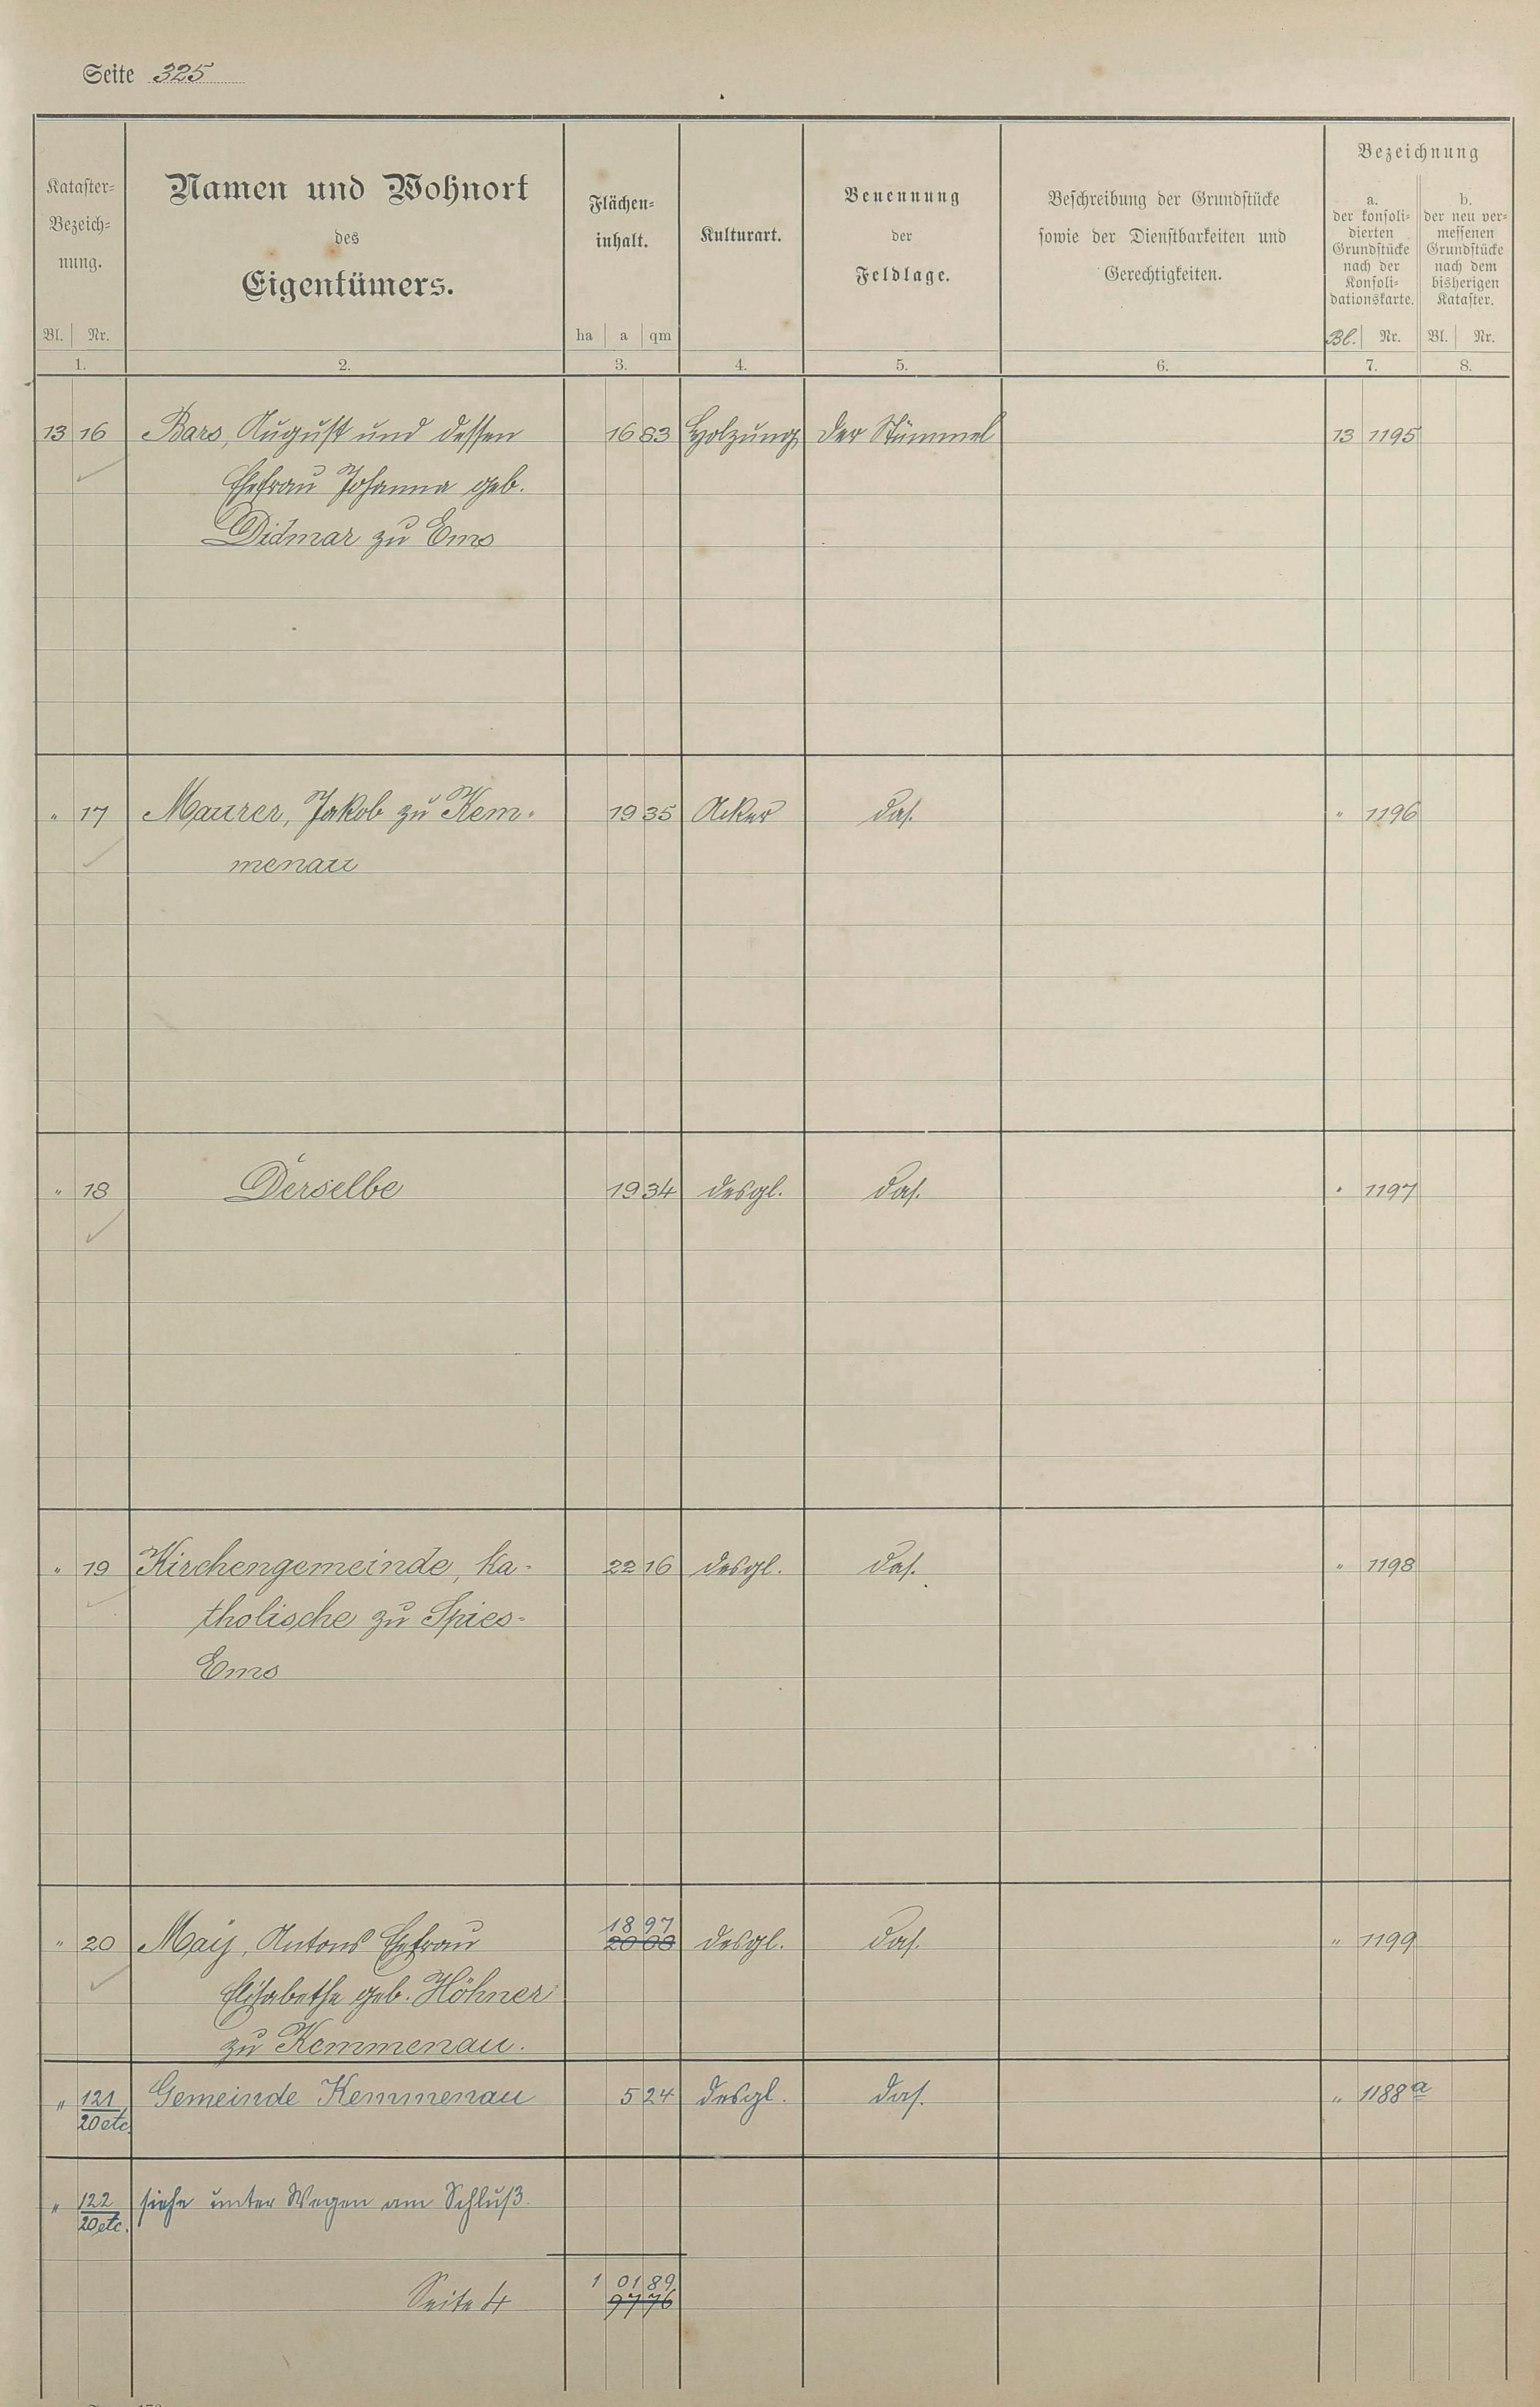 Seite 325
Kataster-
Bezeich-
nung.
Bl. Nr.
1.
Namen und Wohnort
des
Eigentümers.
2.
Flächen-
inhalt.
ha a qm
3.
Kulturart.
4.
Benennung
der
Feldlage.
5.
Beschreibung der Grundstücke
sowie der Dienstbarkeiten und
Gerechtigkeiten.
6.
Bezeichnung
a.
der konsoli-
dierten
Grundstücke
nach der
Konsoli-
dationskarte.
Bl. Nr.
7.
b.
der neu ver-
messenen
Grundstücke
nach dem
bisherigen
Kataster.
Bl. Nr.
8.
13 16 Bars, August und dessen 16 83 Holzung der Stümmel 13 1195
Ehefrau Johanna geb.
Didmar zu Ems
" 17 Maurer, Jakob zu Kem- 19 35 Acker das. " 1196
menau
" 18 Derselbe 19 34 desgl. das. " 1197
" 19 Kirchengemeinde, ka- 22 16 desgl. das. " 1198
tholische zu Spies-
Ems
18 97
" 20 May, Antons Ehefrau 20 08 desgl. das. " 1199
Elisabethe geb. Höhner
zu Kemmenau.
" 121/20 etc. Gemeinde Kemmenau 5 24 desgl. das. " 1188 a
" 122/20 etc. siehe unter Wegen am Schluß.
1 01 89
Seite 97 76